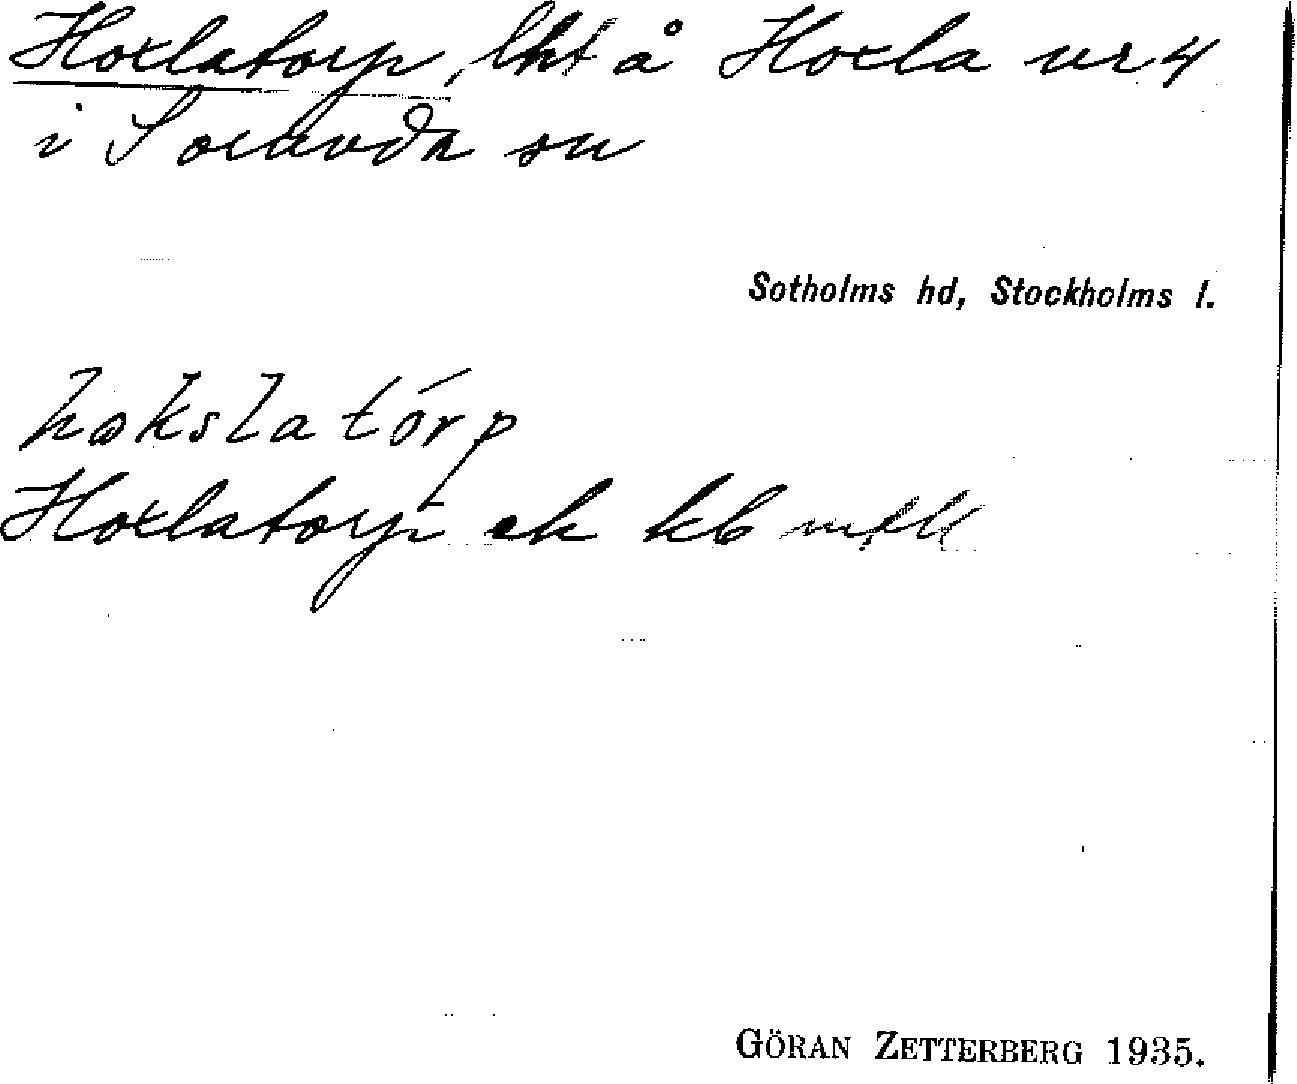 Hoxlatorp, lht å Hoxla nr 4
i Sorunda sn
Sotholms hd, Stockholms l.
hakslatórp
Hoxlatorp ek kb
GÖRAN ZETTERBERG 1935.